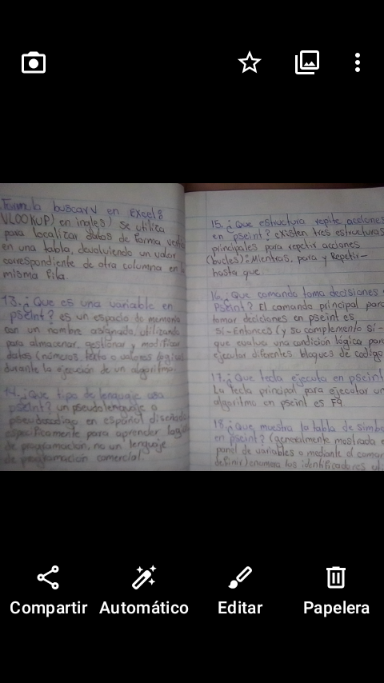 Formula buscarV en excel?
VLOOKUP) en ingles) se utiliza
para localizar datos de forma
en una tabla, devolviendo un valor
correspondiente de otra columna en
misma fila
13. ¿Que es una variable en
pseint? es un espacio de memoria
con un nombre asignado, utilizado
para almacenar, gestionar y modificar
datos (números, texto o valores
durante la ejecución de un algoritmo.
14. ¿Que tipo de lenguaje usa
pseint? un pseudolenguaje o
en español diseñado
especificamente para aprender
de programacion, no un lenguaje
de programacion comercial.
15. ¿Que estructura repite acciones
en pseint? existen tres estructuras
principales para repetir acciones
(bucles): Mientras, para y Repetir-
hasta que
16. ¿Que comando toma decisiones
Pseint? El comando principal para
tomar decisiones en pseint es
si-Entonces (y su complemento si-
que evalua una condición lógica para
ejecutar diferentes bloques de codigo
17. ¿Que tecla ejecuta en pseint
La tecla principal para ejecutar un
algoritmo en pseint es F9.
18. ¿Que muestra la tabla de
en pseint? (generalmente mostrada
panel de variables o mediante el
los identificadores
Compartir
Automático
Editar
Papelera